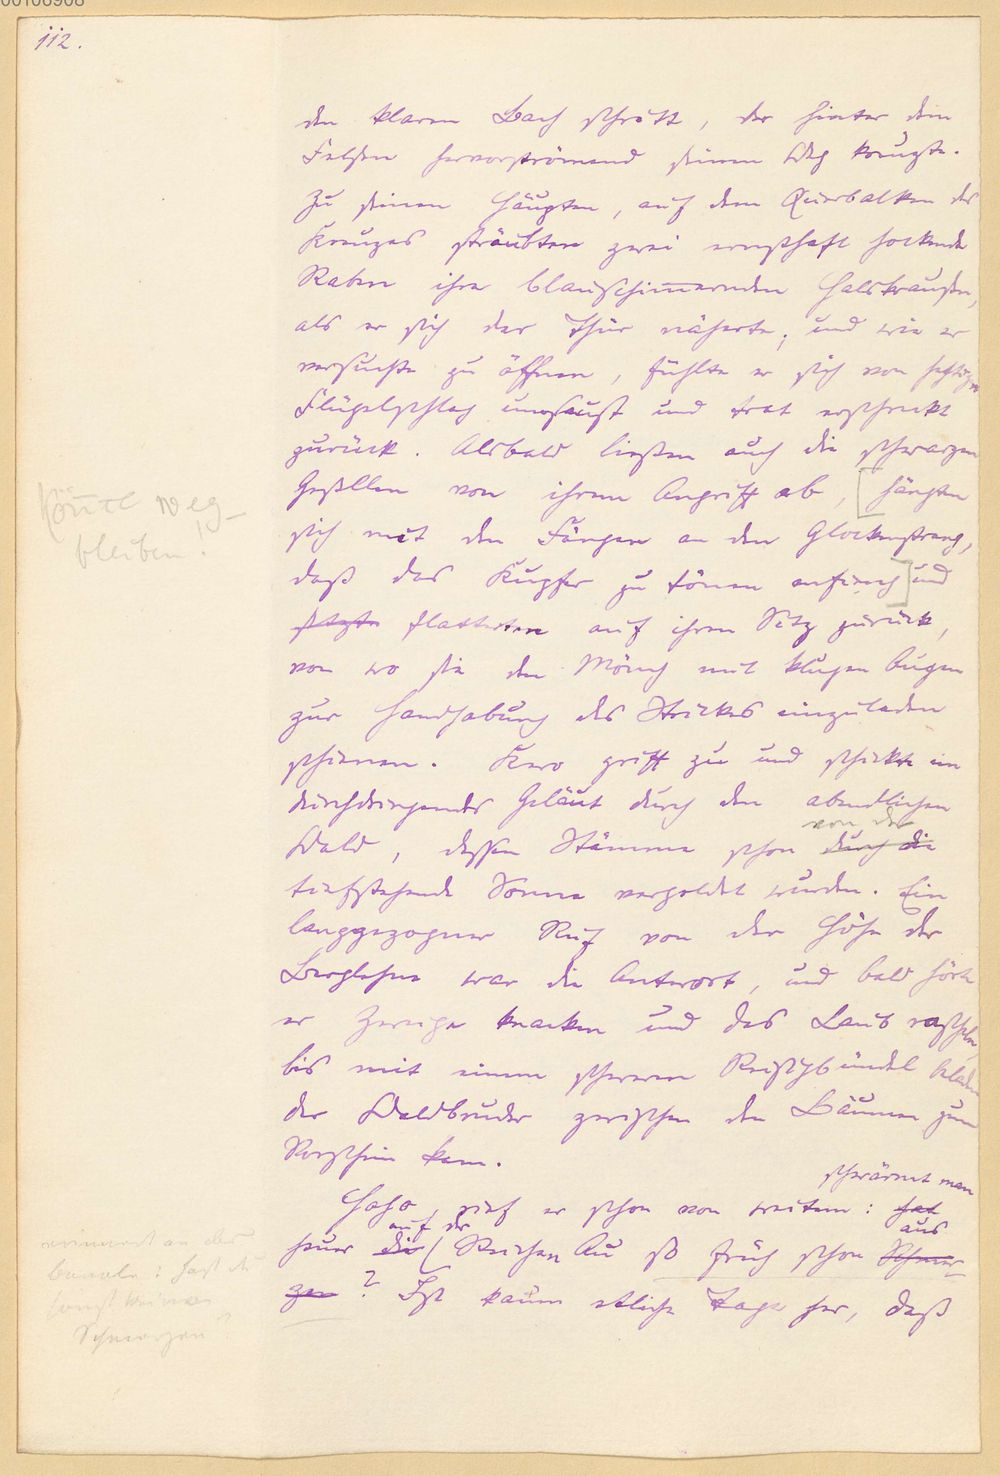 00106908
112.
den klaren Bach schritt, der hinter dem
Felsen hervorströmend seinen Weg kreuzte.
Zu seinen Häupten, auf dem Querbalken des
Kreuzes sträubten zwei ernsthaft hockende
Raben ihre blauschimmernden Halskrausen,
als er sich der Thür näherte; und wie er
versuchte zu öffnen, fühlte er sich von heftigem
Flügelschlag umsaust und trat erschreckt
zurück. Alsbald ließen auch die schwarzen
Gesellen von ihrem Angriff ab, [hängten
sich mit den Fängen an den Glockenstrang,
daß das Kupfer zu tönen anfieng] und
setzte flatterten auf ihren Sitz zurück,
von wo sie den Mönch mit klugen Augen
zur Handhabung des Strickes einzuladen
schienen. Kero griff zu und schickte ein
durchdringendes Geläut durch den abendlichen
von der
Wald, dessen Stämme schon durch die
tiefstehende Sonne vergoldet wurden. Ein
langgezogner Ruf von der Höhe der
Berglehne war die Antwort, und bald hörte
er Zweige knacken und das Laub rascheln,
bis mit einem schweren Reisigbündel beladen
der Waldbruder zwischen den Bäumen zum
Vorschein kam.
schwärmt man
Hoho, rief er schon von weitem: hat
auf der aus
heuer die (Reichen Au so früh schon Schmer-
zen? Ist kaum etliche Tage her, daß
Könnte weg-
bleiben!
erinnert an das
banale: hast du
sonst keine
Schmerzen